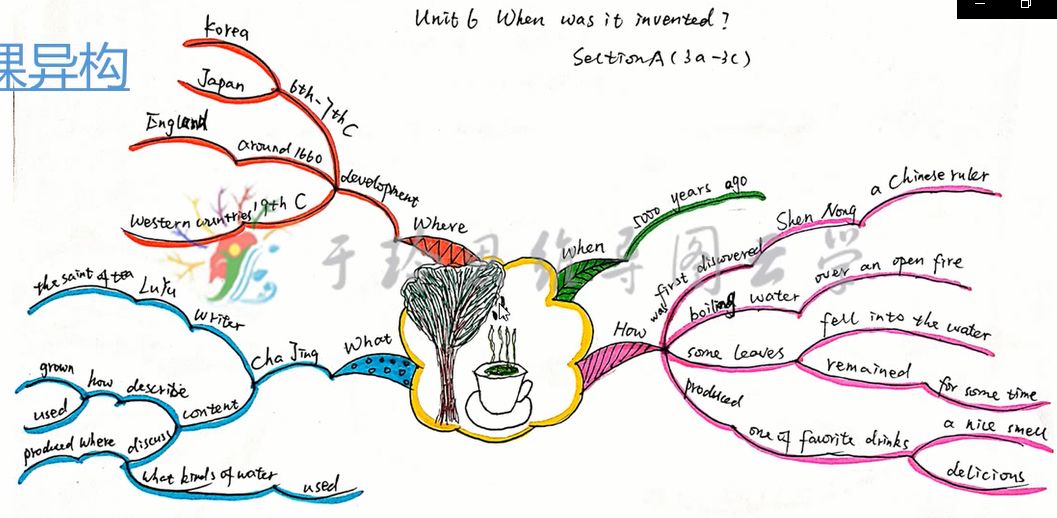 Unit 6 When was it invented?
Section A (3a-3c)
课异构
Korea
Japan
6th-7th C
England
around 1660
western countries
19th C
development
Where
When
5000 years ago
How
was first discovered
Shen Nong
a Chinese ruler
boiling water
over an open fire
some leaves
fell into the water
remained
for some time
produced
one of favorite drinks
a nice smell
delicious
What
Cha Jing
writer
LuYu
the saint of tea
content
describe
how
grown
used
discuss
where
produced
what kinds of water
used
思维导图
学